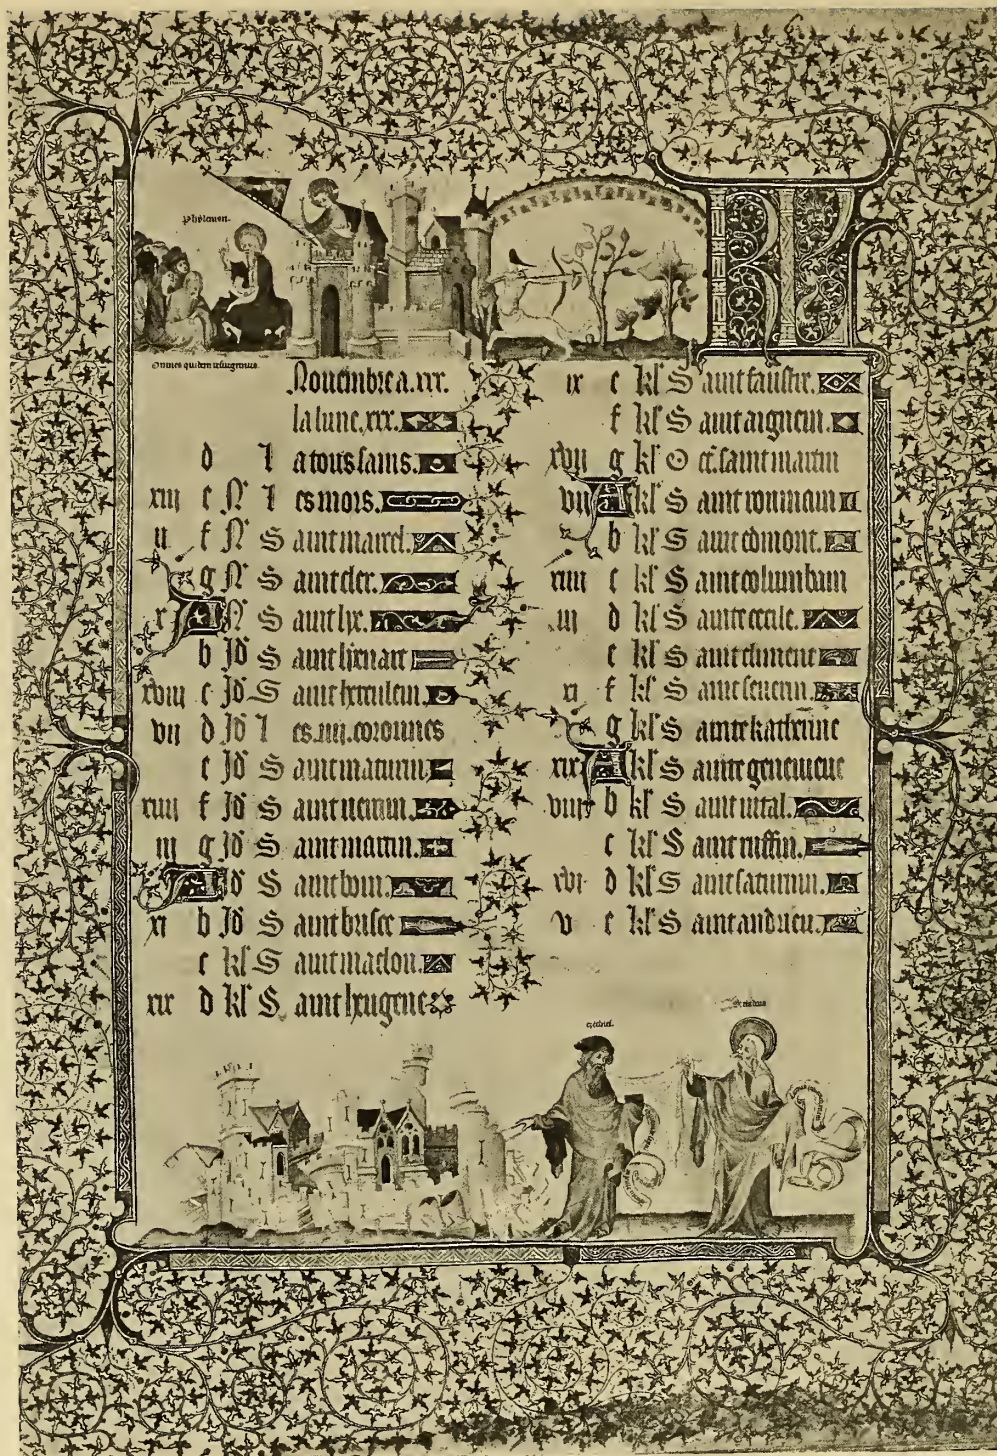 Phylemon.
KL
Omnes quidem resurgemus.
Nouembre a .xxx.
la lune .xxx.
d l a tous sains.
xiii e N' l es mors.
ii f N' S aint marcel.
g N' S aint cler.
x A N' S aint lye.
b Id' S aint lyenart
xviii c Id' S aint herculein.
vii d Id' l es .iiii. coronnes
e Id' S aint maturin.
xiiii f Id' S aint
iii g Id' S aint martin.
A Id' S aint
xi b Id' S aint brisce
c kl' S aint maclou.
xix d kl' S. aint heugene
ix e kl' S aint faustin.
f kl' S aint aignein.
xvii g kl' O ct. saint martin
vii A kl' S aint rommain
b kl' S aint edmont.
xiiii c kl' S aint columbain
iii d kl' S ainte cecile.
e kl' S aint climent
xi f kl' S aint seuerin.
g kl' S ainte katherine
xix A kl' S ainte geneuieue
viii b kl' S aint uital.
c kl' S aint ruffin.
xvi d kl' S aint saturnin.
v e kl' S aint andrieu.